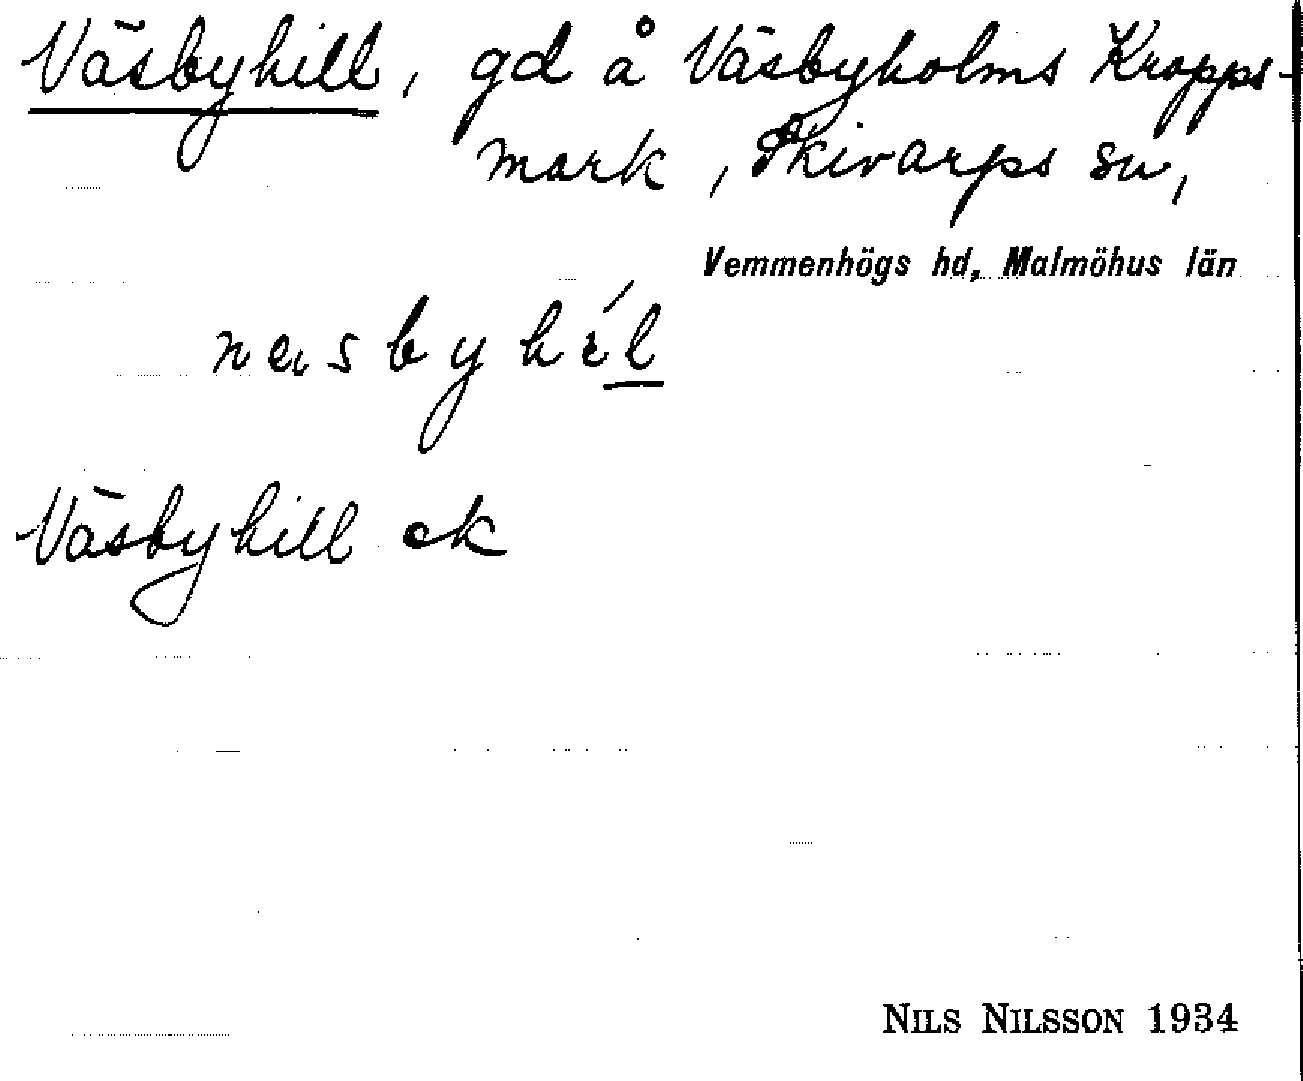 Väsbyhill, gd å Väsbyholms Kropps-
mark, Skivarps sn,
Vemmenhögs hd, Malmöhus län
Väsbyhill ek
NILS NILSSON 1934